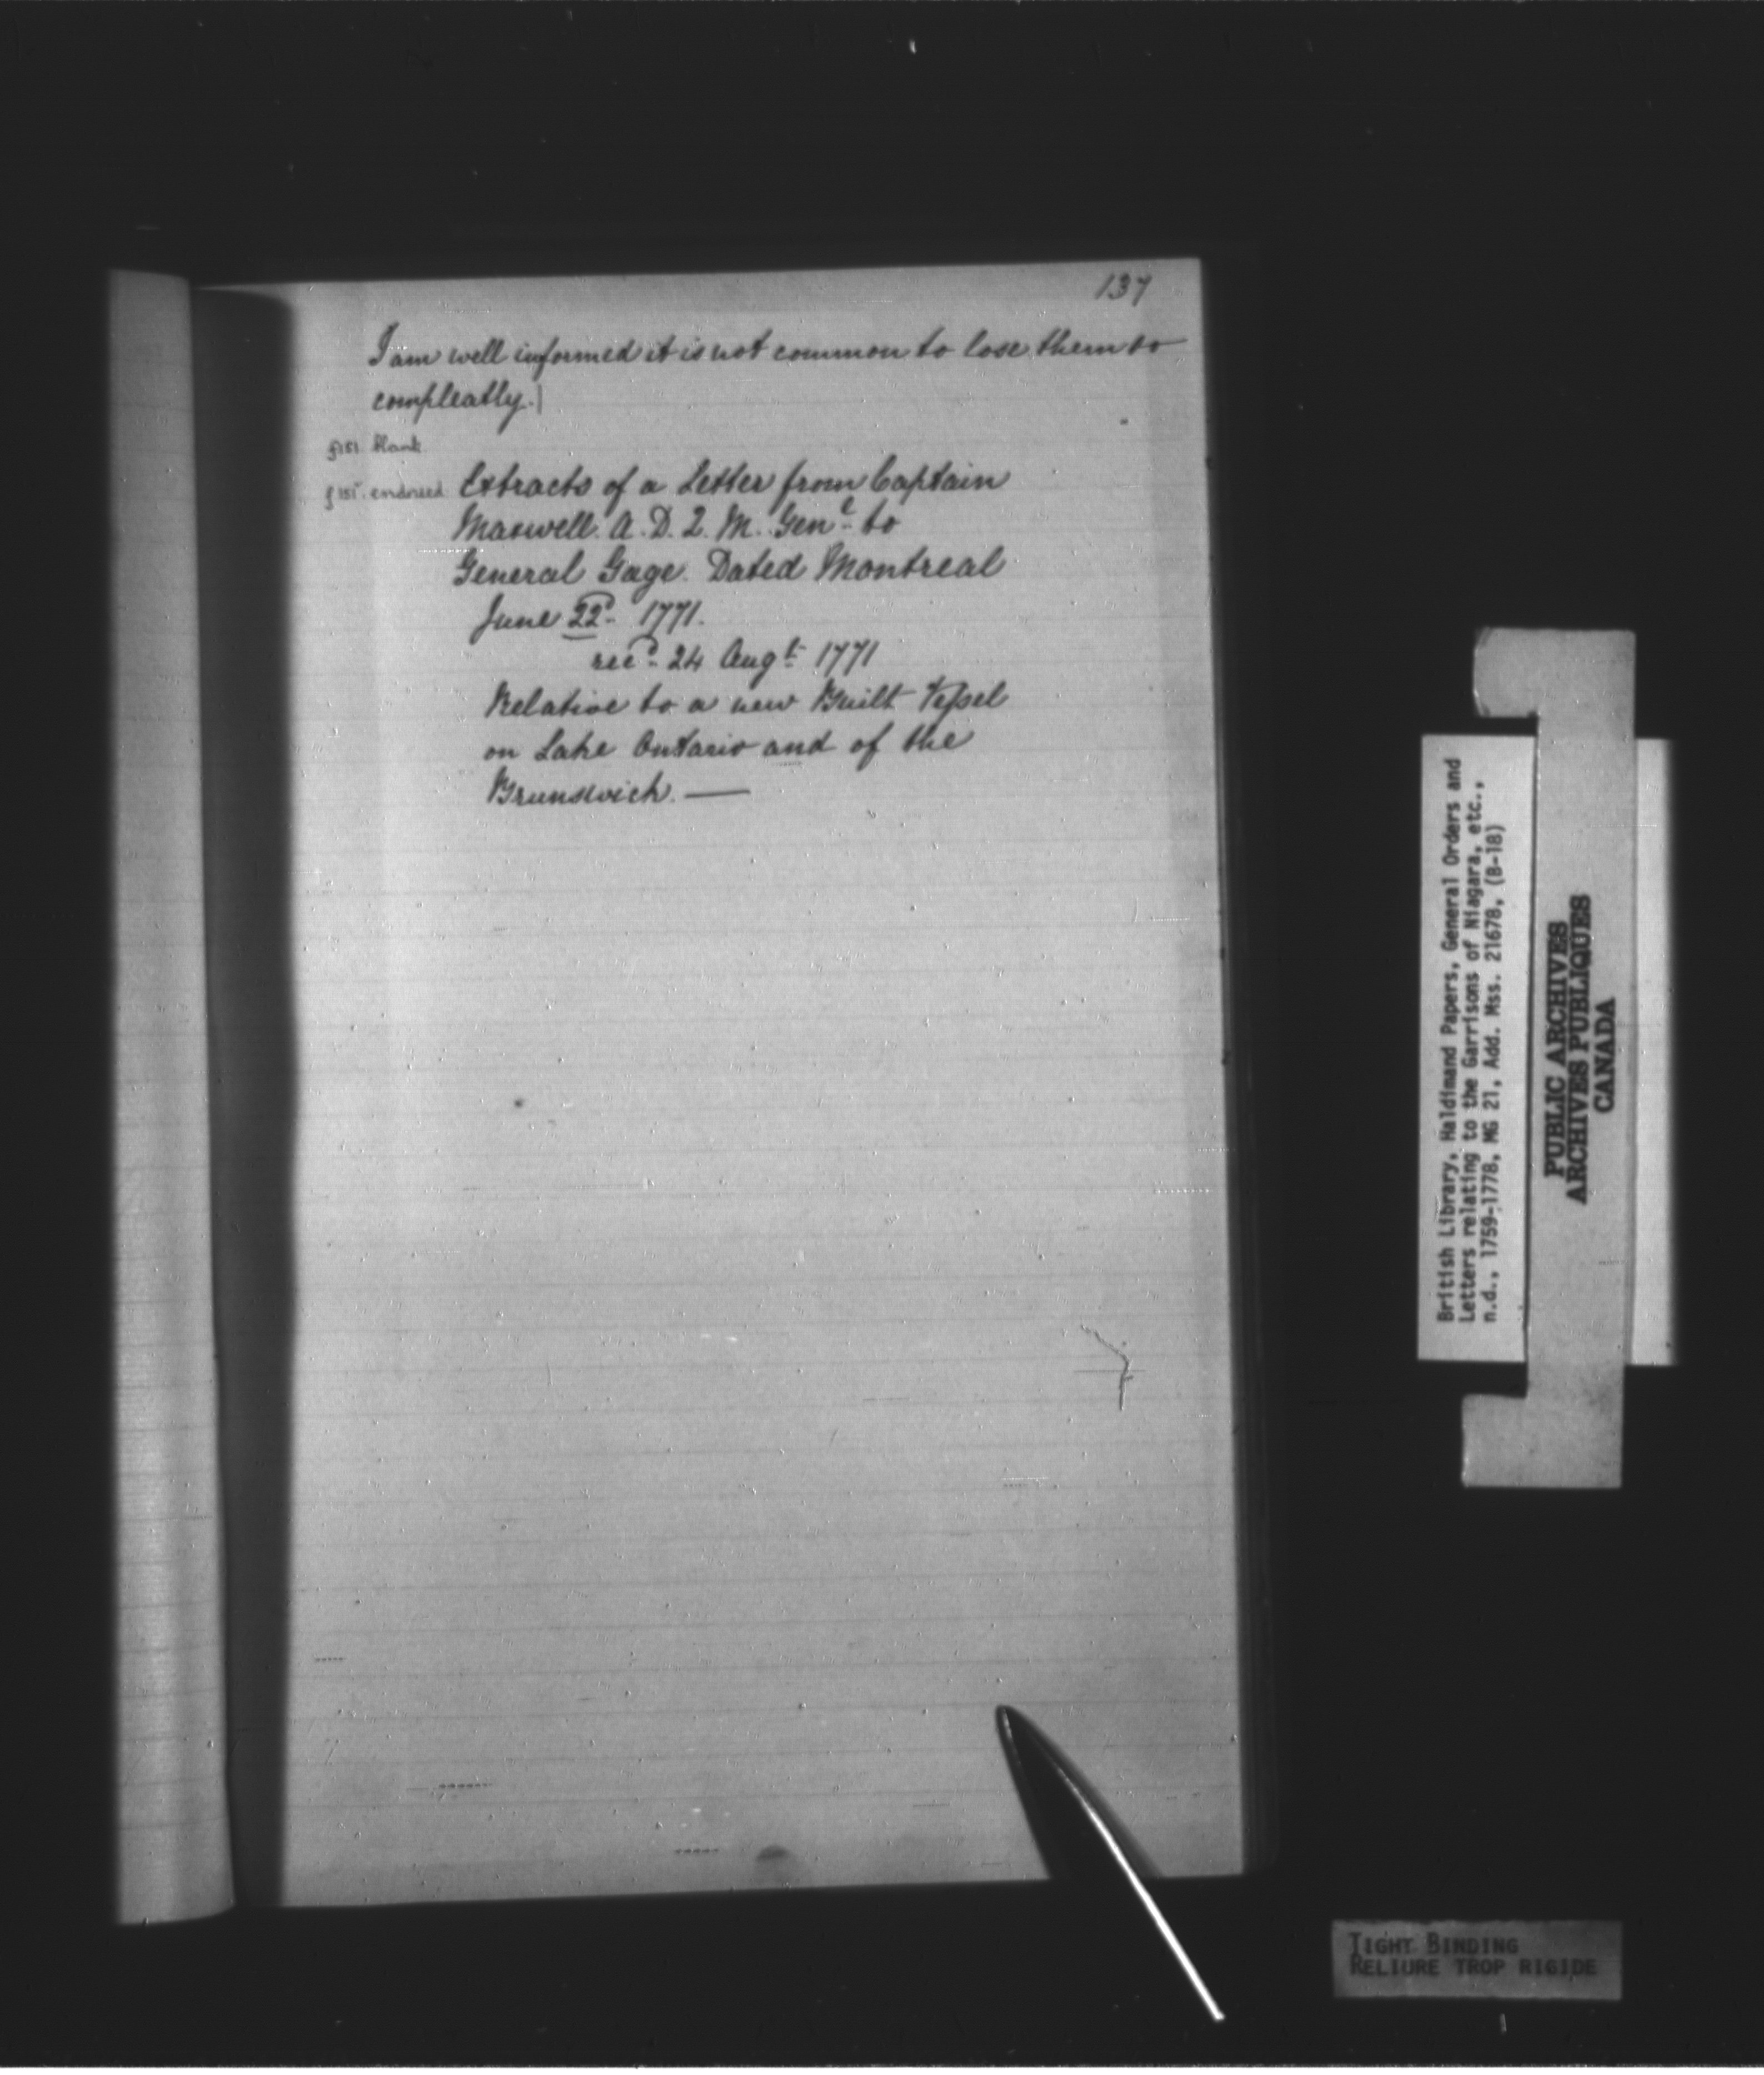 137
I am well informed it is not common to lose them so
compleatly.
f151. blank
f151v. endorsed Extracts of a Letter from Captain
Maxwell. A. D. 2. M. Genl to
General Gage. Dated Montreal
June 22d 1771.
recd 24 Augt 1771
Relative to a new Built Vessel
on Lake Ontario and of the
Brunswick. —
British Library, Haldimand Papers, General Orders and
Letters relating to the Garrisons of Niagara, etc.,
n.d., 1759-1778, MG 21, Add. Mss. 21678, (B-18)
PUBLIC ARCHIVES
ARCHIVES PUBLIQUES
CANADA
TIGHT BINDING
RELIURE TROP RIGIDE